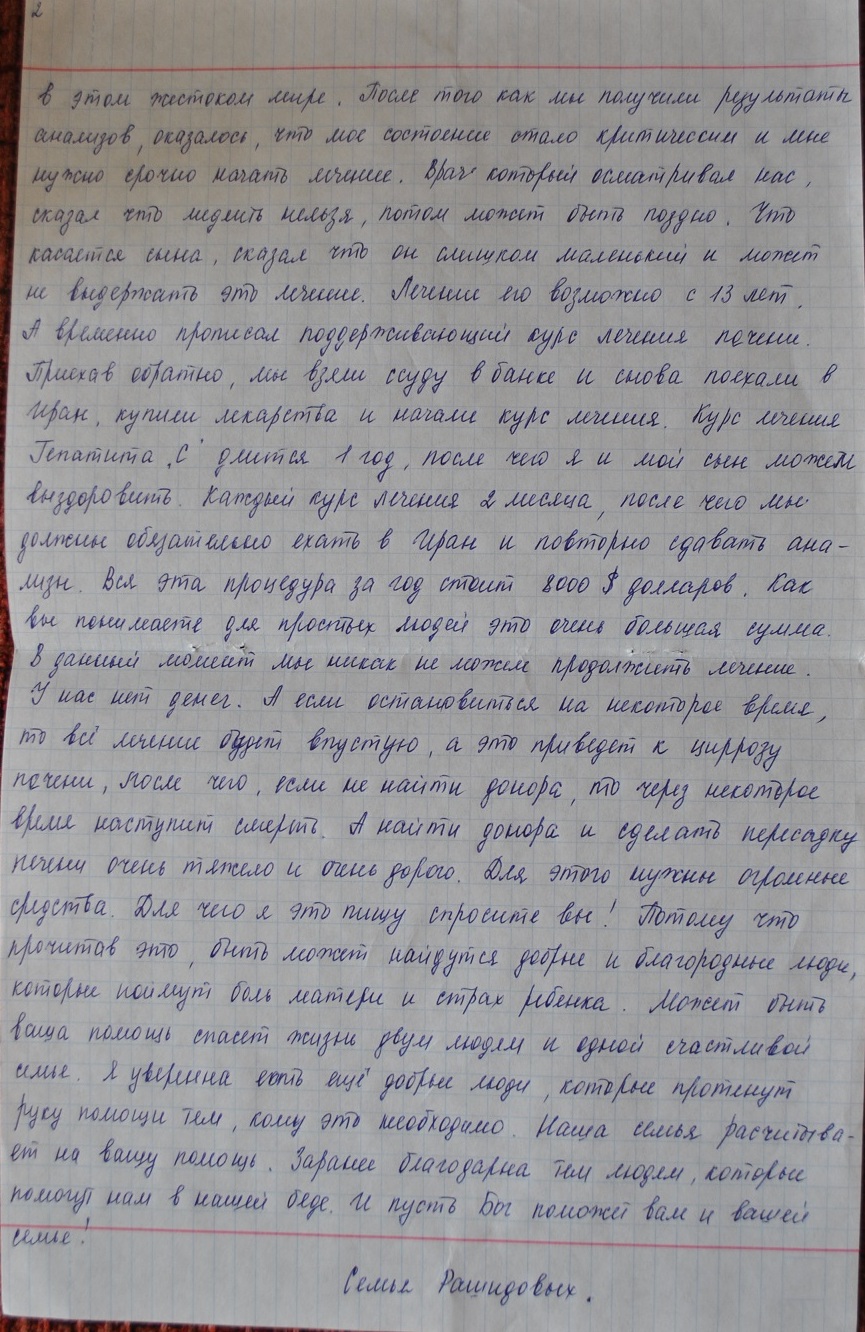 2
в этом жестоком мире. После того как мы получили результаты
анализов, оказалось, что мое состояние стало критическим и мне
нужно срочно начать лечение. Врач который осматривал нас,
сказал что медлить нельзя, потом может быть поздно. Что
касается сына, сказал что он слишком маленький и может
не выдержать это лечение. Лечение его возможно с 13 лет.
А временно прописал поддерживающий курс лечения печени.
Приехав обратно, мы взяли ссуду в банке и снова поехали в
Иран, купили лекарства и начали курс лечения. Курс лечения
Гепатита „С" длится 1 год, после чего я и мой сын можем
выздоровить. Каждый курс лечения 2 месяца, после чего мы
должны обязательно ехать в Иран и повторно сдавать ана-
лизы. Вся эта процедура за год стоит 8000 $ долларов. Как
вы понимаете для простых людей это очень большая сумма.
В данный момент мы никак не можем продолжить лечение.
У нас нет денег. А если остановиться на некоторое время,
то всё лечение будет впустую, а это приведет к циррозу
печени, после чего, если не найти донора, то через некоторое
время наступит смерть. А найти донора и сделать пересадку
печени очень тяжело и очень дорого. Для этого нужны огромные
средства. Для чего я это пишу спросите вы! Потому что
прочитав это, быть может найдутся добрые и благородные люди,
которые поймут боль матери и страх ребенка. Может быть
ваша помощь спасет жизнь двум людям и одной счастливой
семье. Я уверенна есть ещё добрые люди, которые протянут
руку помощи тем, кому это необходимо. Наша семья расчитыва-
ет на вашу помощь. Заранее благодарна тем людям, которые
помогут нам в нашей беде. И пусть Бог поможет вам и вашей
семье!
Семья Рашидовых.